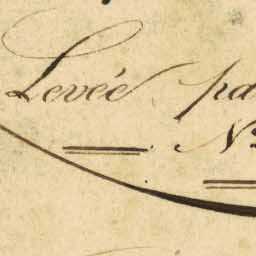 Levée pa
N